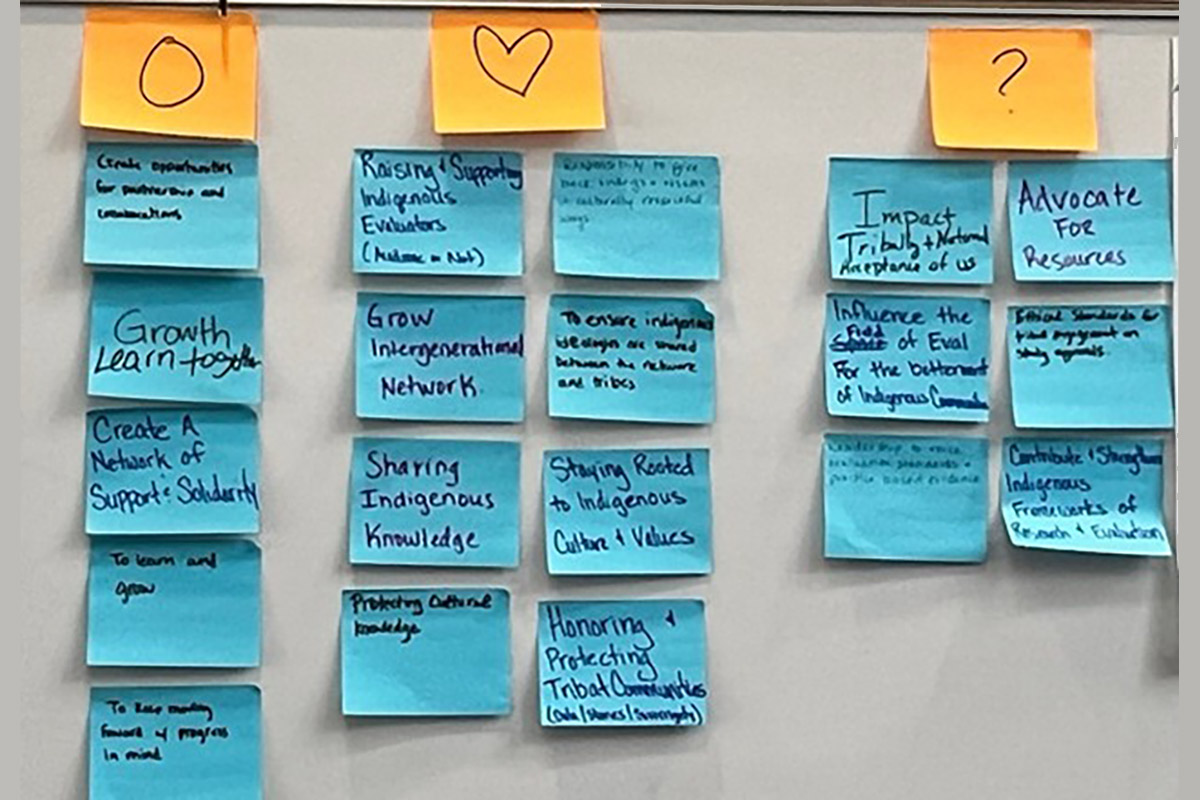 ?
Create opportunities
for partnership and
Growth
Learn together
Create A
Network of
Support & Solidarity
To learn and
grow
To keep moving
forward w/ progress
in mind
Raising & Supporting
Indigenous
Evaluators
Grow
Intergenerational
Network
Sharing
Indigenous
Knowledge
Protecting Cultural
knowledge
Responsibility to give
back findings +
in culturally
ways
To ensure indigenous
ideologies are shared
between the network
and tribes
Staying Rooted
to Indigenous
Culture & Values
Honoring &
Protecting
Tribal Communities
(Data/Stories/Sovereignty)
Impact
Tribally + National
Acceptance of us
Influence the
Field
of Eval
For the betterment
of Indigenous Communities
Leadership to
evaluation standards +
practice based evidence
Advocate
FOR
Resources
Ethical Standards for
tribal engagement on
study
Contribute & Strengthen
Indigenous
Frameworks of
Research & Evaluation